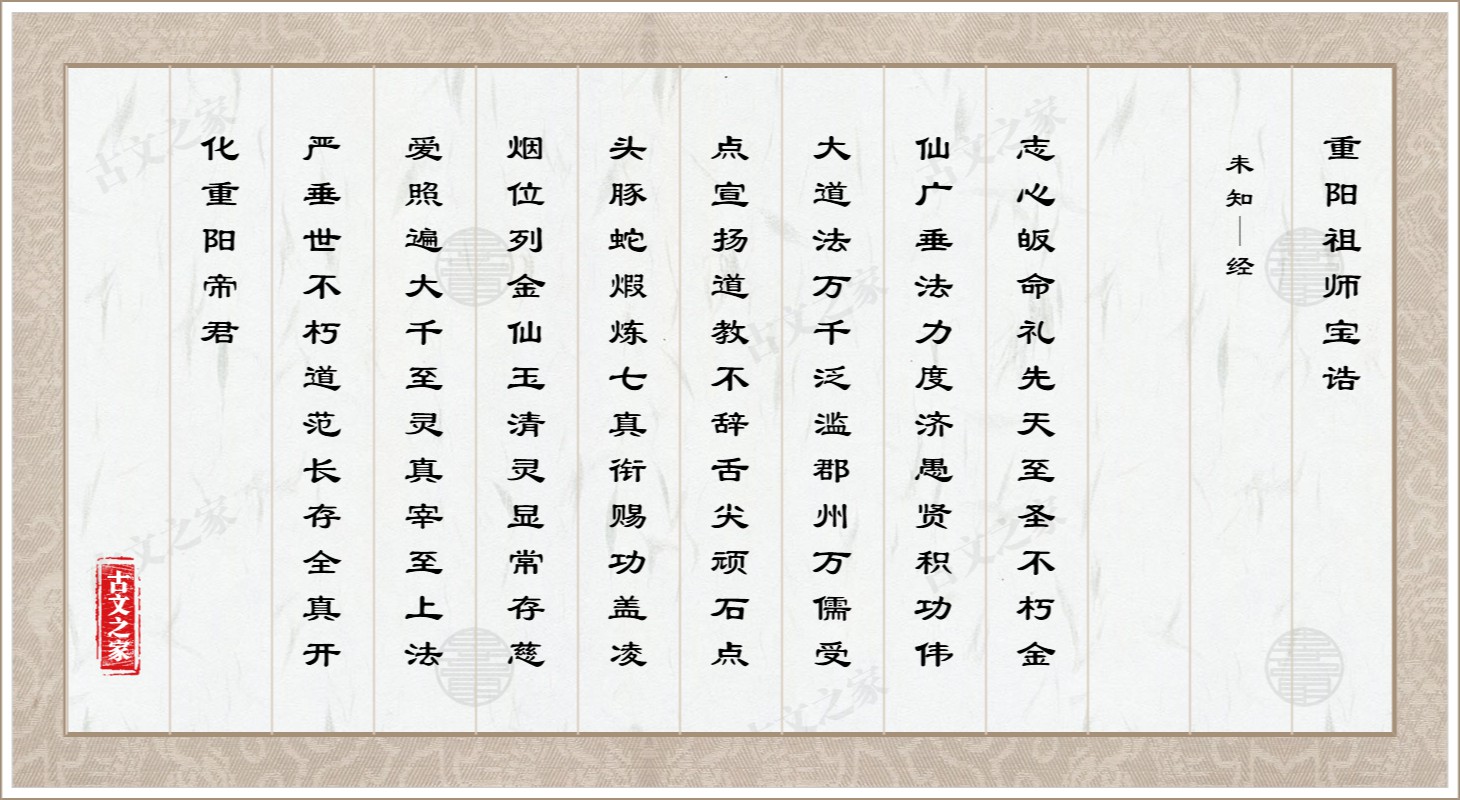 重阳祖师宝诰
未知｜经
志心皈命礼先天至圣不朽金
仙广垂法力度济愚贤积功伟
大道法万千泛滥郡州万儒受
点宣扬道教不辞舌尖顽石点
头豚蛇煆炼七真衔赐功盖凌
烟位列金仙玉清灵显常存慈
爱照遍大千至灵真宰至上法
严垂世不朽道范长存全真开
化重阳帝君
古文之家